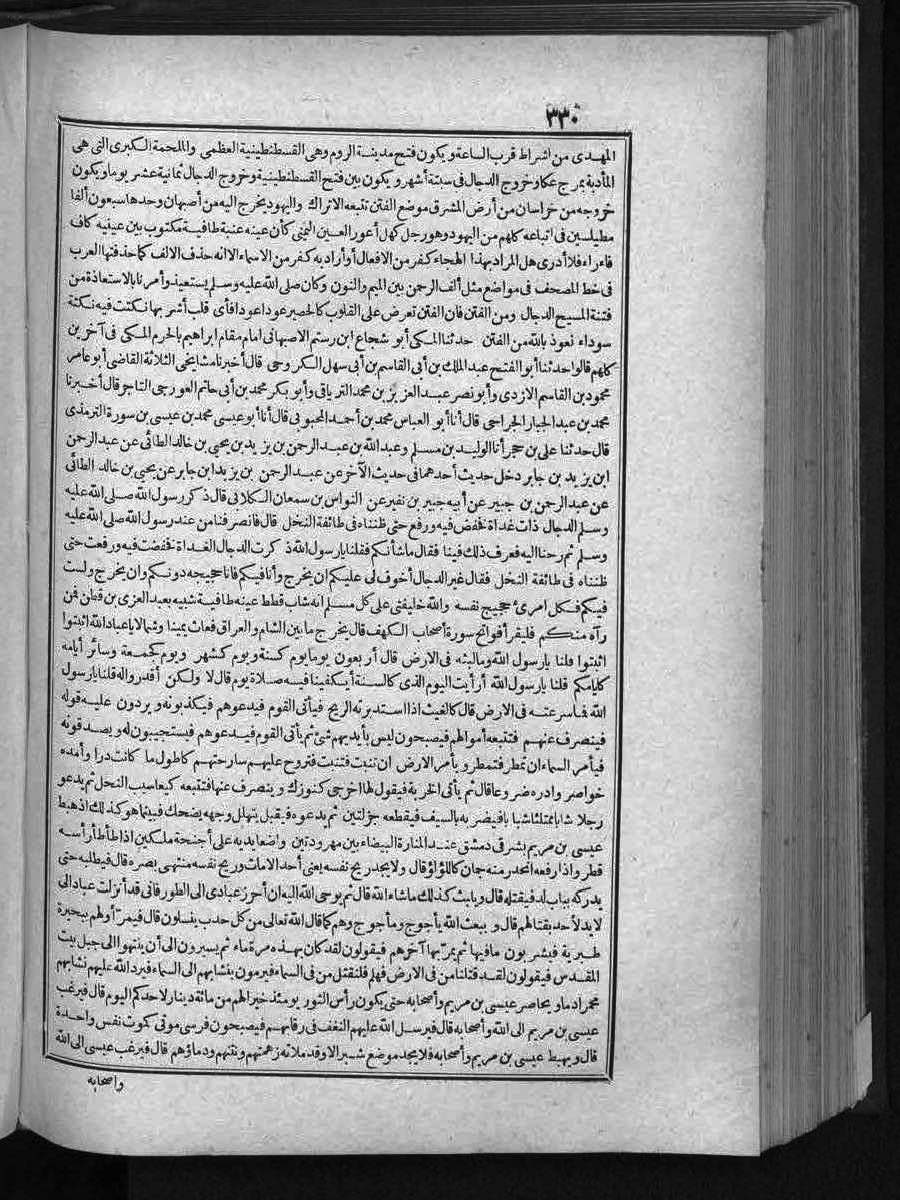 ٣٣٠
المهدى من اشراط قرب الساعة ويكون فتح مدينة الروم وهى القسطنطينية العظمى والملحمة الكبرى التى هى
المأدبة بمرج عكا وخروج الدجال فى ستة أشهر ويكون بين فتح القسطنطينية وخروج الدجال ثمانية عشر يوما ويكون
خروجه من خراسان من أرض المشرق موضع الفتن تتبعه الاتراك واليهود يخرج اليه من أصبهان وحدها سبعون ألفا
مطيلسين فى اتباعه كلهم من اليهود وهو رجل كهل أعور العين اليمنى كأن عينه عنبة طافية مكتوب بين عينيه كاف
فاء راء فلا أدرى هل المراد بهذا الهجاء كفر من الافعال أو أراد به كفر من الاسماء الا انه حذف الالف كما حذفتها العرب
فى خط المصحف فى مواضع مثل ألف الرحمن بين الميم والنون وكان صلى الله عليه وسلم يستعيذ وأمرنا بالاستعاذة من
فتنة المسيح الدجال ومن الفتن فان الفتن تعرض على القلوب كالحصير عودا عودا فأى قلب أشربها نكتت فيه نكتة
سوداء نعوذ بالله من الفتن حدثنا المكى أبو شجاع ابن رستم الاصبهانى امام مقام ابراهيم بالحرم المكى فى آخرين
كلهم قالوا حدثنا أبو الفتح عبد الملك بن أبى القاسم بن أبى سهل الكروخى قال أخبرنا مشايخى الثلاثة القاضى أبو عامر
محمود بن القاسم الازدى وأبو نصر عبد العزيز بن محمد الترياقى وأبو بكر محمد بن أبى حاتم العورجى التاجر قال أخبرنا
محمد بن عبد الجبار الجراحى قال أنا أبو العباس محمد بن أحمد المحبوبى قال أنا أبو عيسى محمد بن عيسى بن سورة الترمذى
قال حدثنا على بن حجر أنا الوليد بن مسلم وعبد الله بن عبد الرحمن بن يزيد بن يحيى بن خالد الطائى عن عبد الرحمن
ابن يزيد بن جابر دخل حديث أحدهما فى حديث الآخر عن عبد الرحمن بن يزيد ابن جابر عن يحيى بن خالد الطائى
عن عبد الرحمن بن جبير عن أبيه جبير بن نفير عن النواس بن سمعان الكلابى قال ذكر رسول الله صلى الله عليه
وسلم الدجال ذات غداة فخفض فيه ورفع حتى ظنناه فى طائفة النخل قال فانصرفنا من عند رسول الله صلى الله عليه
وسلم ثم رحنا اليه فعرف ذلك فينا فقال ما شأنكم فقلنا يا رسول الله ذكرت الدجال الغداة فخفضت فيه ورفعت حتى
ظنناه فى طائفة النخل فقال غير الدجال أخوف لى عليكم ان يخرج وأنا فيكم فانا حجيجه دونكم وان يخرج ولست
فيكم فكل امرئ حجيج نفسه والله خليفتى على كل مسلم انه شاب قطط عينه طافية شبيه بعبد العزى بن قطن فمن
رآه منكم فليقرأ فواتح سورة أصحاب الكهف قال يخرج ما بين الشام والعراق فعاث يمينا وشمالا يا عباد الله اثبتوا
اثبتوا قلنا يا رسول الله وما لبثه فى الارض قال أربعون يوما يوم كسنة ويوم كشهر ويوم كجمعة وسائر أيامه
كأيامكم قلنا يا رسول الله أرأيت اليوم الذى كالسنة أيكفينا فيه صلاة يوم قال لا ولكن أقدروا له قلنا يا رسول
الله فما سرعته فى الارض قال كالغيث اذا استدبرته الريح فيأتى القوم فيدعوهم فيكذبونه ويردون عليه قوله
فينصرف عنهم فتتبعه أموالهم فيصبحون ليس بأيديهم شئ ثم يأتى القوم فيدعوهم فيستجيبون له ويصدقونه
فيأمر السماء ان تمطر فتمطر ويأمر الارض ان تنبت فتنبت فتروح عليهم سارحتهم كاطول ما كانت درا وأمده
خواصر وادره ضروعا قال ثم يأتى الخربة فيقول لها اخرجى كنوزك وينصرف عنها فتتبعه كيعاسيب النحل ثم يدعو
رجلا شابا ممتلئا شبابا فيضربه بالسيف فيقطعه جزلتين ثم يدعوه فيقبل يتهلل وجهه يضحك فبينما هو كذلك اذ هبط
عيسى بن مريم بشرقى دمشق عند المنارة البيضاء بين مهرودتين واضعا يديه على أجنحة ملكين اذا طأطأ رأسه
قطر واذا رفعه انحدر منه جمان كاللؤلؤ قال ولا يجد ريح نفسه يعنى أحد الا مات وريح نفسه منتهى بصره قال فيطلبه حتى
يدركه بباب لد فيقتله قال ويلبث كذلك ما شاء الله قال ثم يوحى الله اليه ان أحرز عبادى الى الطور فانى قد أنزلت عبادا لى
لا يد لأحد بقتالهم قال ويبعث الله يأجوج ومأجوج وهم كما قال الله تعالى من كل حدب ينسلون قال فيمر أولهم ببحيرة
طبرية فيشربون ما فيها ثم يمر بها آخرهم فيقولون لقد كان بهذه مرة ماء ثم يسيرون الى أن ينتهوا الى جبل بيت
المقدس فيقولون لقد قتلنا من فى الارض فهلم فلنقتل من فى السماء فيرمون بنشابهم الى السماء فيرد الله عليهم نشابهم
محمرا دما ويحاصر عيسى بن مريم وأصحابه حتى يكون رأس الثور يومئذ خيرا لهم من مائة دينار لاحدكم اليوم قال فيرغب
عيسى بن مريم الى الله وأصحابه قال فيرسل الله عليهم النغف فى رقابهم فيصبحون فرسى موتى كموت نفس واحدة
قال ويهبط عيسى بن مريم وأصحابه فلا يجد موضع شبر الا وقد ملأته زهمتهم ونتنهم ودماؤهم قال فيرغب عيسى الى الله
وأصحابه